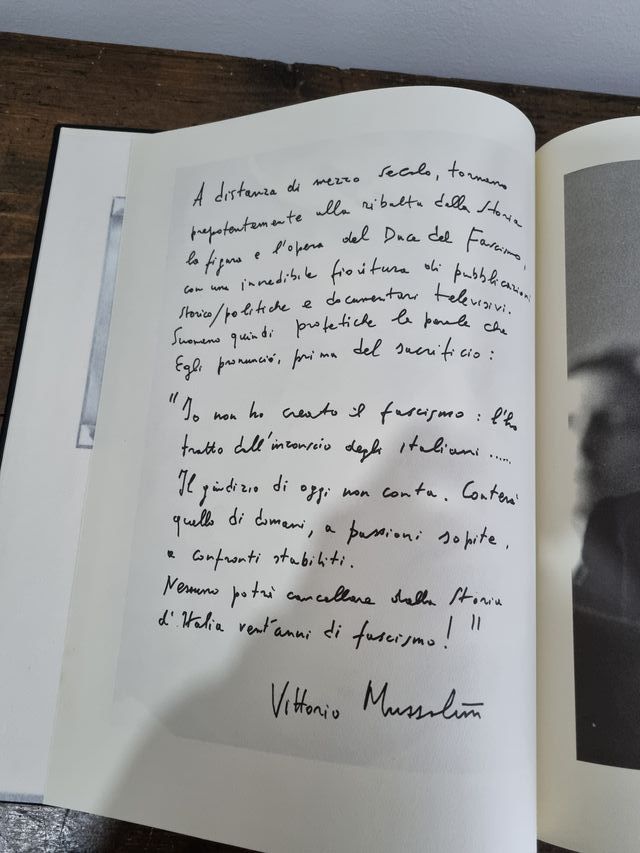 A distanza di mezzo secolo, tornano
prepotentemente alla ribalta della Storia
la figura e l'opera del Duce del Fascismo,
con una incredibile fioritura di pubblicazioni
storico/politiche e documentari televisivi.
Suonano quindi profetiche le parole che
Egli pronunciò, prima del sacrificio:
"Io non ho creato il fascismo: l'ho
tratto dall'inconscio degli italiani .....
Il giudizio di oggi non conta. Conterà
quello di domani, a passioni sopite,
a confronti stabiliti.
Nessuno potrà cancellare dalla Storia
d'Italia vent'anni di fascismo!"
Vittorio Mussolini